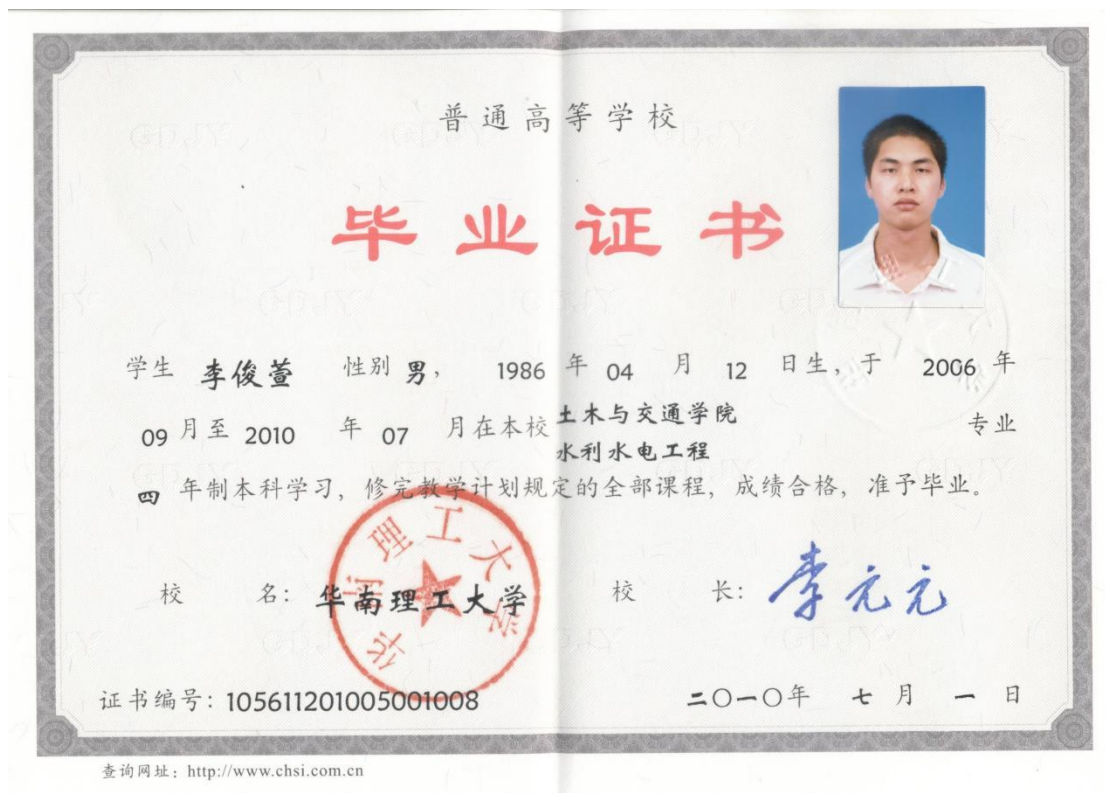 普通高等学校
毕业证书
学生 李俊萱 性别 男， 1986 年 04 月 12 日生，于 2006 年
09 月至 2010 年 07 月在本校 土木与交通学院 专业
水利水电工程
四 年制本科学习，修完教学计划规定的全部课程，成绩合格，准予毕业。
校 名：华南理工大学 校 长：李元元
华南理工大学
证书编号：105611201005001008 二〇一〇年 七 月 一 日
查询网址：http://www.chsi.com.cn